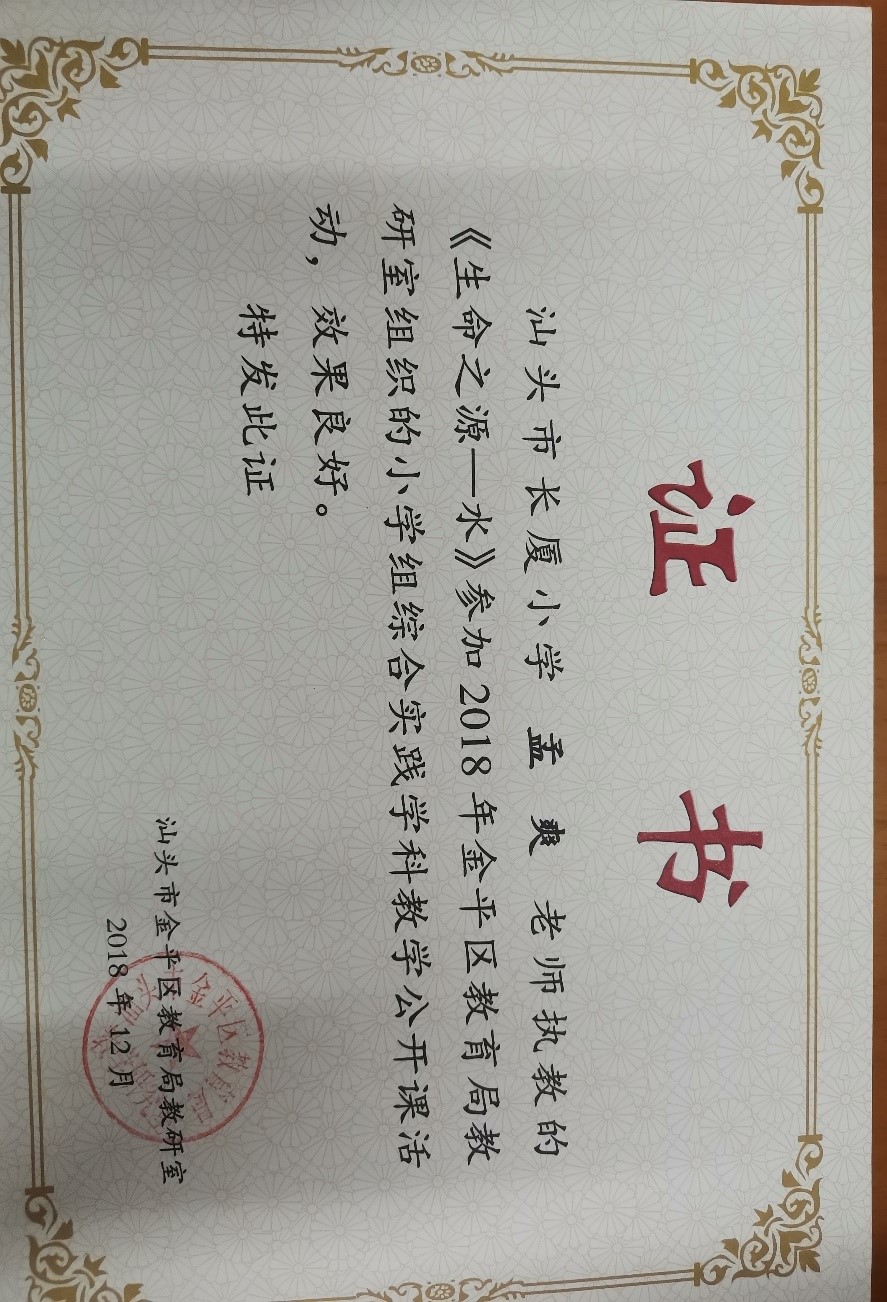 证书
汕头市长厦小学 孟爽 老师执教的
《生命之源—水》参加2018年金平区教育局教
研室组织的小学组综合实践学科教学公开课活
动，效果良好。
特发此证
汕头市金平区教育局教研室
2018年12月